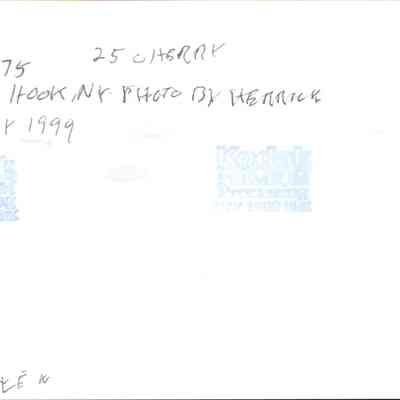 25 CHERRY
75
HOOK, NY PHOTO BY HERRICK
Y 1999
Kodak
Processing